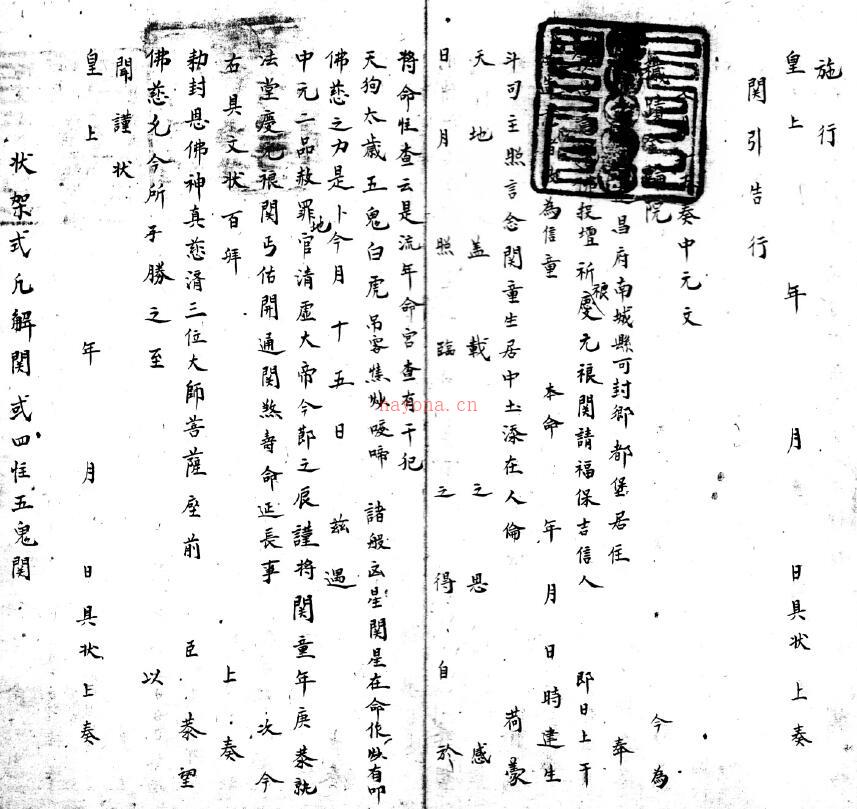 施行
皇上 年 月 日具状上奏
関引告行
奏中元文
院 今為
昌府南城縣可封鄉都堡居住 奉
投壇祈慶元禳関請福保吉信人 即日上干
為信童 本命 年 月 日時建生
斗司主照言念関童生居中土添在人倫 荷蒙
天地盖載之恩 感
日月照臨之得 自於
將命恠查云是流年命宮查有干犯
天狗太歲五鬼白虎吊客 諸般凶星関星在命作 有叩
佛慈之力是卜今月十五日 兹遇
中元二品赦罪地官清虛大帝今節之辰謹將関童年庚恭就
法堂慶元禳関丐佑開通関煞壽命延長事 次今
右具文状百拜 上奏
勅封恩佛神真慈濟三位大師菩薩座前 臣恭望
佛慈允今所干勝之至 以
聞謹状
皇上 年 月 日具状上奏
状架式凡解関或四恠五鬼関
hayona.cn